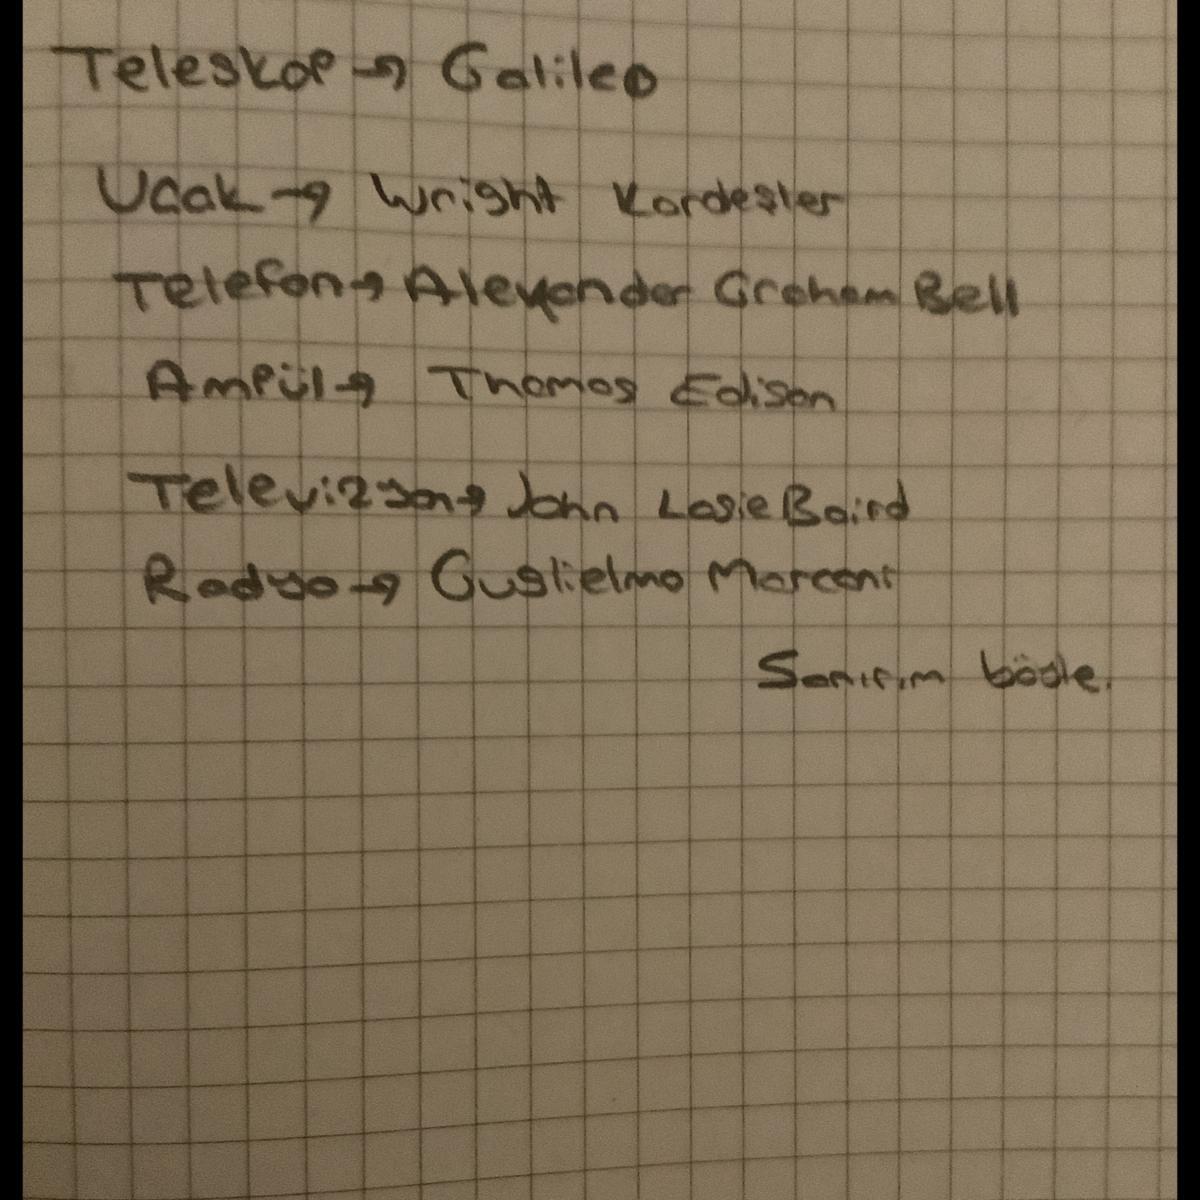 Teleskop → Galileo
Uçak → Wright Kardeşler
Telefon → Alexander Graham Bell
Ampül → Thomas Edison
Televizyon → John Logie Baird
Radyo → Guglielmo Marconi
Sanırım böyle.